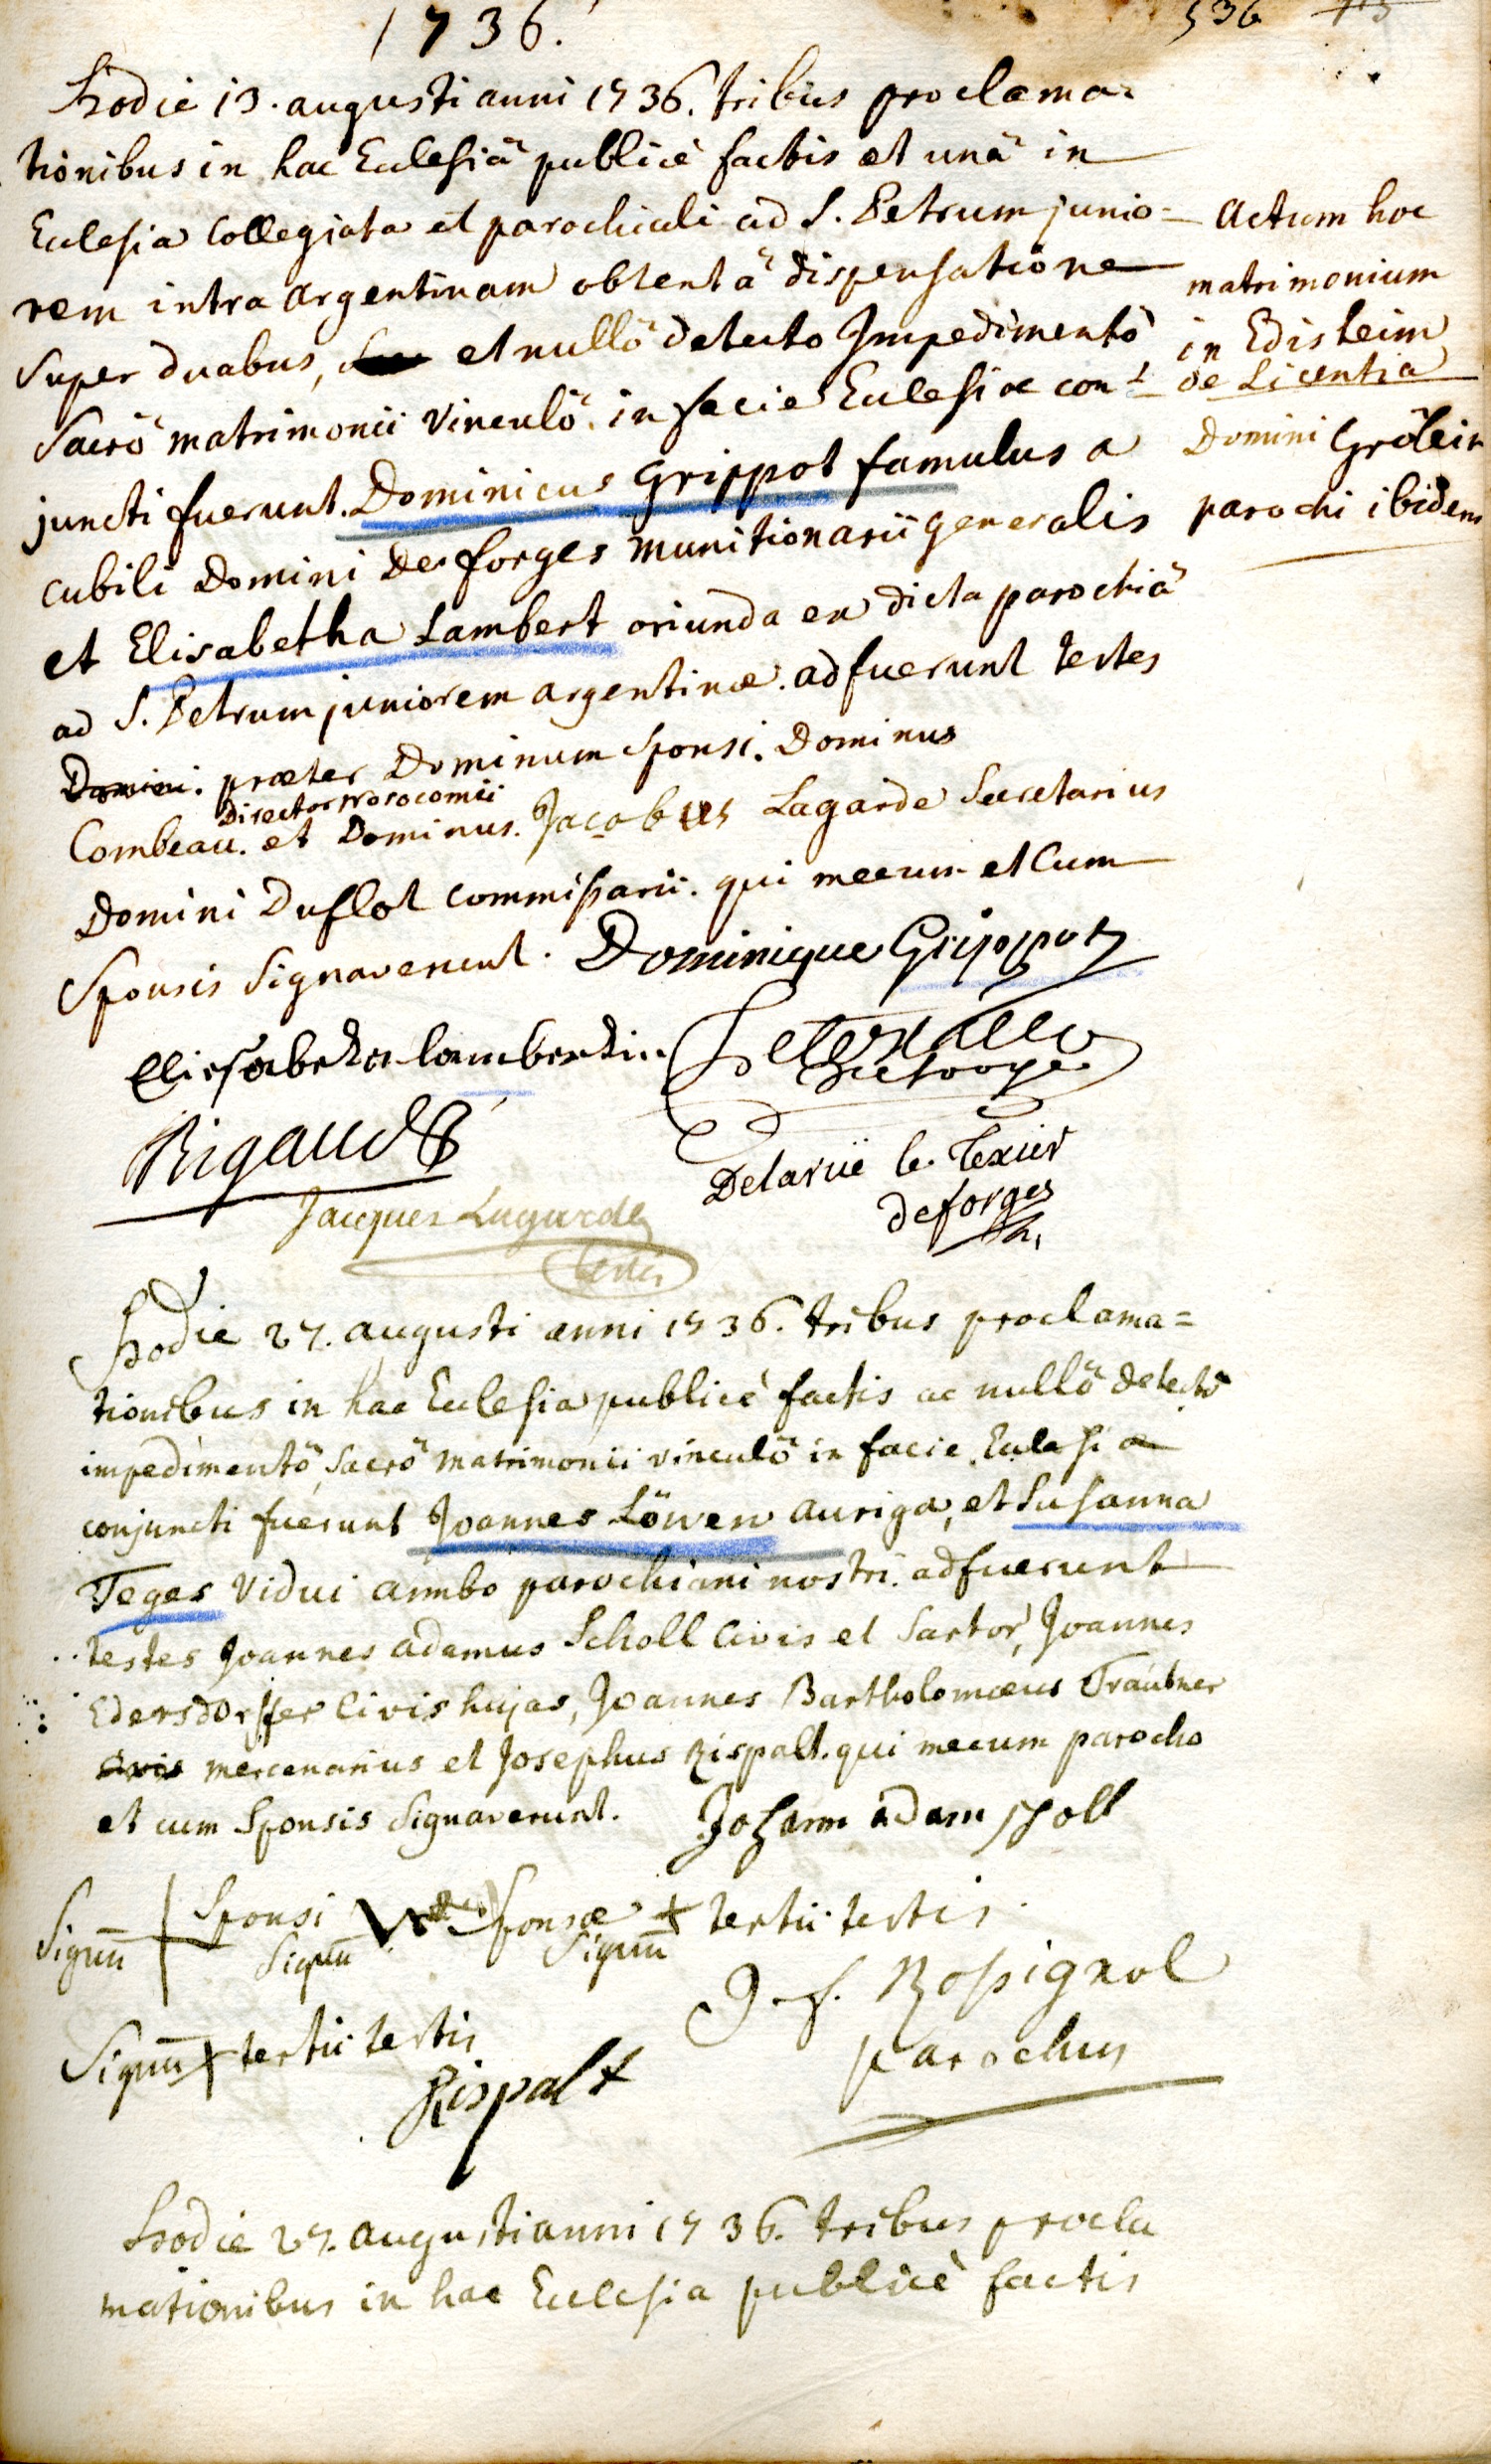 1736.
536
Hodie 13. augusti anni 1736. tribus proclama=
tionibus in hac Eclesiâ publicè factis et unâ in
Eclesia Collegiata et parochiali ad S. Petrum junio=
rem intra Argentinam obtentâ dispensatione
super duabus, et nullô detecto Impedimentô
Sacrô matrimonii Vinculô in facie Eclesiae con=
juncti fuerunt. Dominicus Grippot famulus a
cubili Domini Desforges munitionarii generalis
et Elisabetha Lambert oriunda ex dicta parochiâ
ad S. Petrum juniorem argentinæ. adfuerunt testes
Domini. præter Dominum sponsi. Dominus
Director Nosocomii
Combeau. et Dominus. Jacobus Lagarde Secretarius
Domini Duflot commissarii. qui mecum et Cum
Sponsis Signaverunt. Dominique Grippot
Actum hoc
matrimonium
in Edisheim
de Licentia
Domini Grölein
parochi ibidem
Eliesabetha lambertin
Rigaud
Delarüe le Texier
deforges
Jacques Lagarde
testis
Hodie 27. augusti anni 1736. tribus proclama=
tionibus in hac Eclesia publicè factis ac nullô detectô
impedimentô, sacrô matrimonii vinculô in facie Eclesiæ
conjuncti fuerunt Joannes Löwen auriga, et Susanna
Teges Vidui ambo parochiani nostri. adfuerunt
testes Joannes adamus Scholl Civis et Sartor, Joannes
Edersdorffer Civis hujas, Joannes Bartholomæus Traubner
civis mercenarius et Josephus Rispalt. qui mecum parocho
et cum Sponsis Signaverunt. Johann adam scholl
Signū Sponsi Signū Sponsæ Signū + tertii testis
Signū + tertii testis
J. f. Rossignol
parochus
Rispalt
Hodie 27. augusti anni 1736. tribus procla
mationibus in hac Eclesia publicè factis